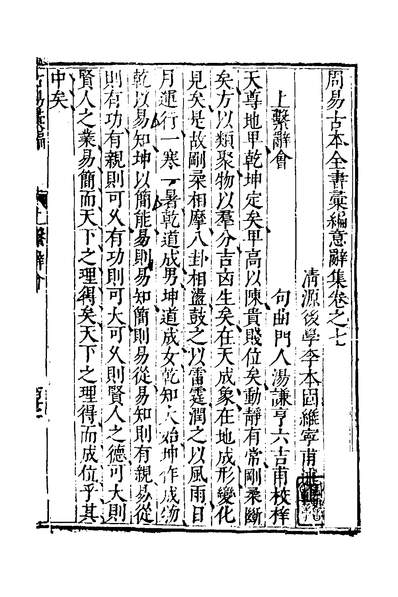 周易古本全書彙編意辭集卷之七
清源後學李本固維寧甫
句曲門人湯謙亨六吉甫校梓
上繫辭會
天尊地卑乾坤定矣卑高以陳貴賤位矣動靜有常剛柔斷
矣方以類聚物以羣分吉凶生矣在天成象在地成形變化
見矣是故剛柔相摩八卦相盪鼓之以雷霆潤之以風雨日
月運行一寒一暑乾道成男坤道成女乾知大始坤作成物
乾以易知坤以簡能易則易知簡則易從易知則有親易從
則有功有親則可久有功則可大可久則賢人之德可大則
賢人之業易簡而天下之理得矣天下之理得而成位乎其
中矣
古易彙編
上繫辭會